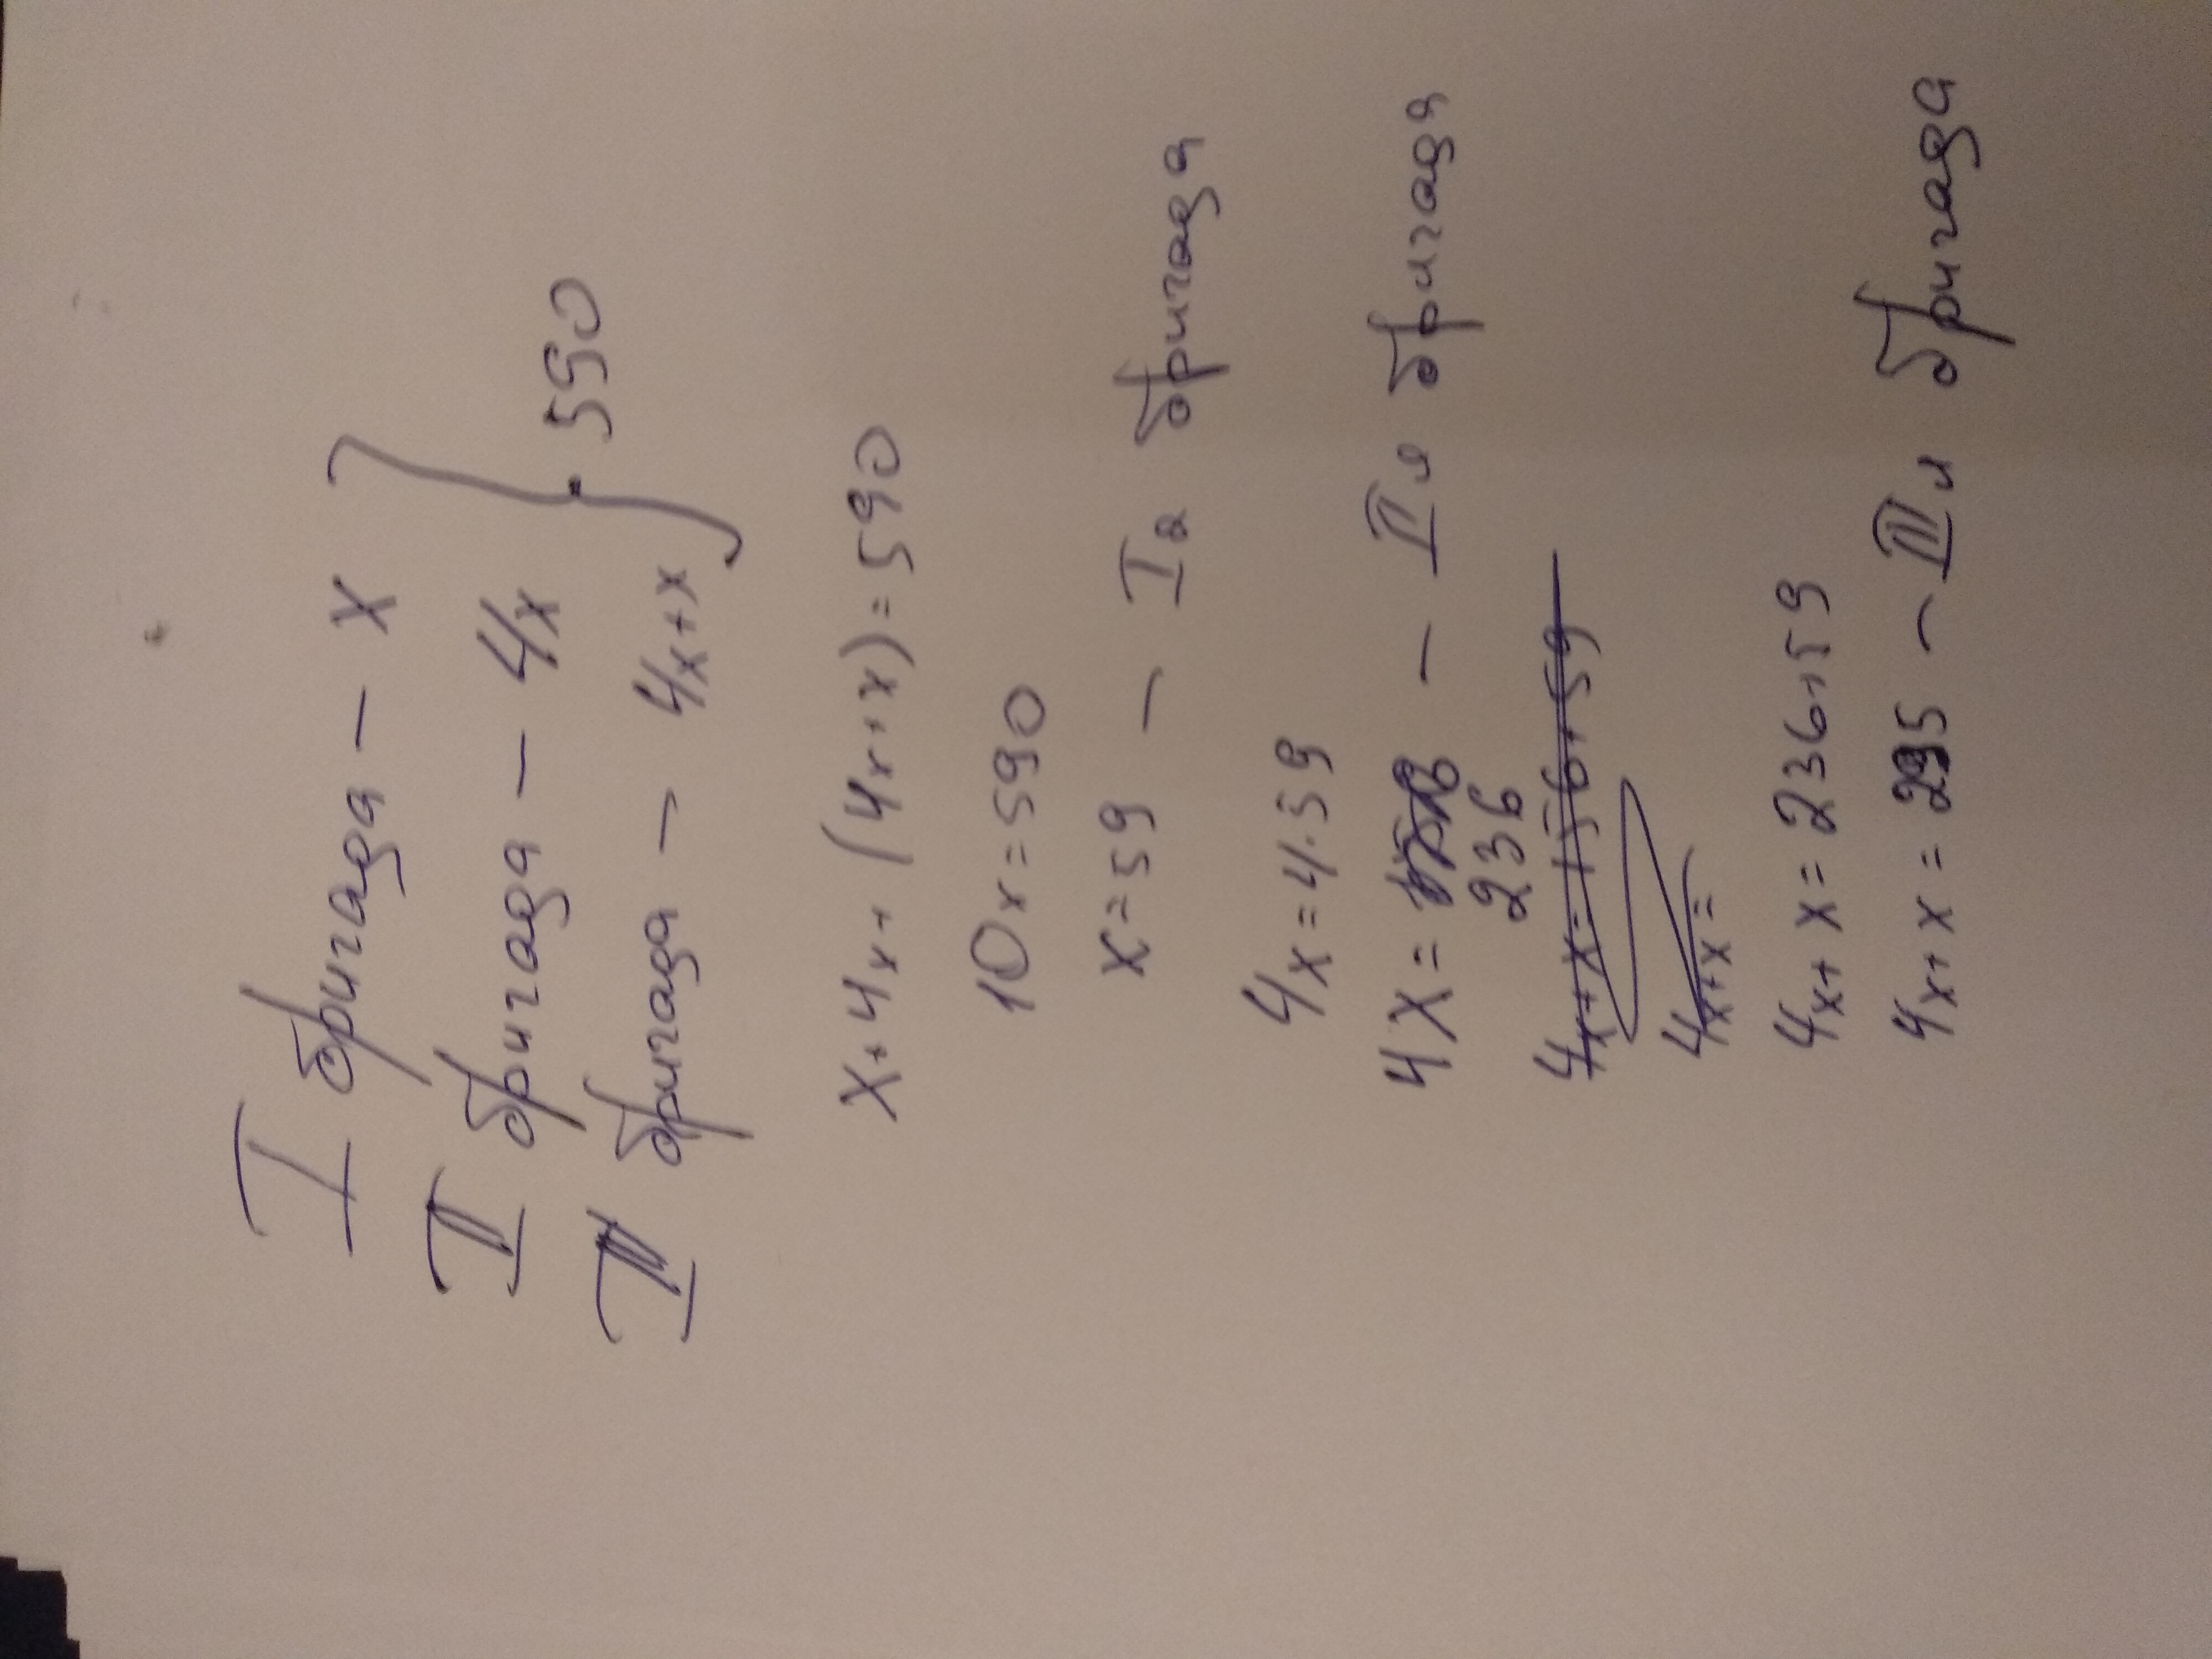 I бригада – x
II бригада – 4x } 590
III бригада – 4x+x
x+4x+(4x+x)=590
10x=590
x=59 – Iя бригада
4x=4·59
4x= 236 – IIя бригада
4x+x=156+59
4x+x=
4x+x=236+59
4x+x=295 – IIIя бригада